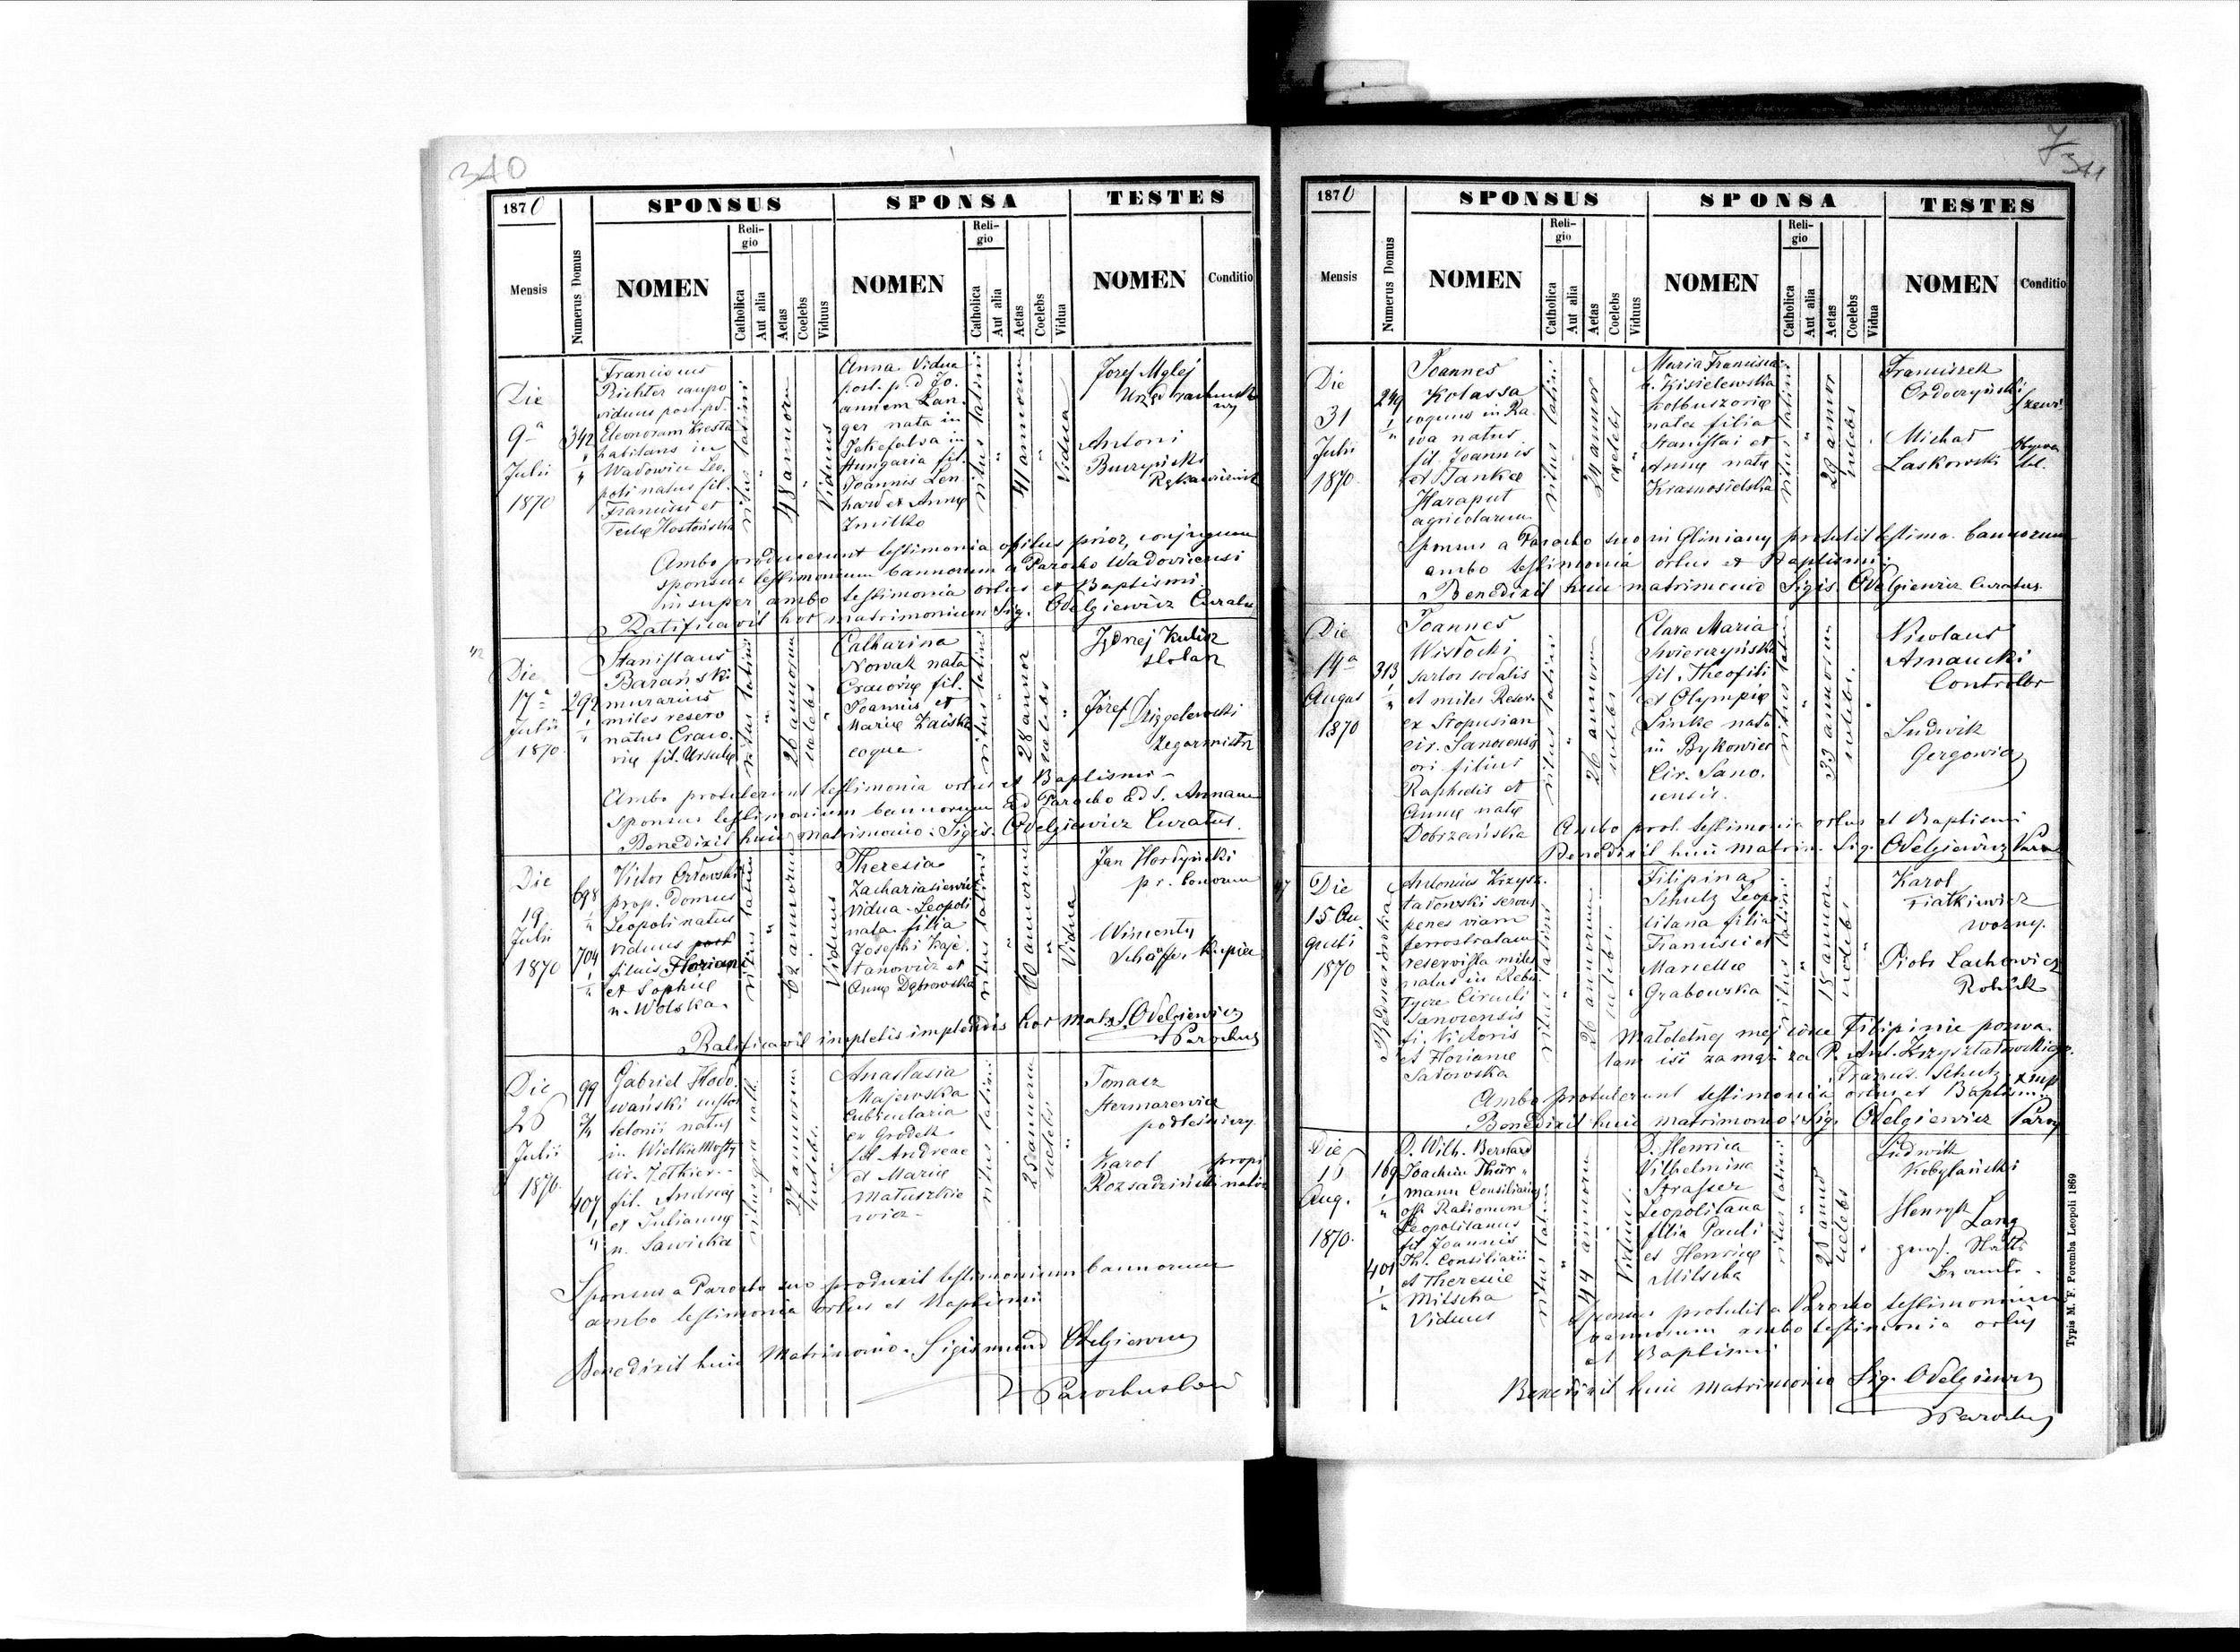 340
1870
SPONSUS
SPONSA
TESTES
Mensis
Numerus Domus
NOMEN
Religio
Catholica
Aut alia
Aetas
Coelebs
Viduus
NOMEN
Religio
Catholica
Aut alia
Aetas
Coelebs
Vidua
NOMEN
Conditio
Die
9a
Julii
1870
342
Franciscus
Richter caupo
viduus post. pd.
Eleonoram
habitans in
Wadowice Leo.
poli natus fil.
Francisci et
Teclę
ritus latini
48 annorum
Viduus
Anna Vidua
post. p. d Jo.
annem Lan.
ger nata in
in
Hungaria fil.
Joannis Len
hard et Annę
Zmitko
ritus latini
41 annorum
Vidua
Jozef Mglej
Antoni
Buczyński
Ambo produxerunt testimonia obitus prior. conjugum
sponsus testimonium bannorum a Parocho Wadovicensi
insuper ambo testimonia ortus et Baptismi.
Ratificavit hoc matrimonium Sig. Odelgiewicz Curatus
42
Die
17a
Julii
1870
292
Stanislaus
Barański
murarius
miles reserv
natus Craco.
vię fil. Ursulę
ritus latini
26 annorum
caelebs
Catharina
Nowak nata
Cracovię fil.
Joannis et
Marię
coqua
ritus latini
28 annor
caelebs
Jędrzej Kulisz
stolarz
Józef
Zegarmistrz
Ambo protulerunt testimonia ortus et Baptismi
sponsus testimonium bannorum a Parocho ad S. Annam
Benedixit huic matrimonio: Sigis. Odelgiewicz Curatus.
Die
19
Julii
1870
698
704
Victor Orłowski
prop. domus
Leopoli natus
viduus post
filius Floriani
et Sophię
n. Wolska.
ritus latini
62 annorum
Viduus
Theresia
Zachariasiewicz
vidua Leopoli
nata filia
Josephi Kaje.
tanowicz et
Annę Dąbrowska
ritus latini
60 annorum
Vidua
Jan Hordyński
pr. bonorum
Wincenty
Schäffer Kupiec
Ratificavit impletis implendis hoc matr. S. Odelgiewicz
Parochus
Die
26
Julii
1870.
99
3/4
407
Gabriel Hodo.
wański custos
telonii natus
in Wielkie Mosty
cir. Żółkiew.
fil. Andreę
et Juliannę
n. Sawicka
27 annorum
caelebs.
Anastasia
Majewska
cubicularia
ex Grodek
fil Andreae
et Marię
Matuszkie
wicz
ritus latini
25 annorum
caelebs
Tomasz
podleśniczy
Karol
Rozsadziński
Sponsus a Parocho suo produxit testimonium bannorum
ambo testimonia ortus et Baptismi
Benedixit huic Matrimonio. Sigismund Odelgiewicz
Parochus
7
341
1870
SPONSUS
SPONSA
TESTES
Mensis
Numerus Domus
NOMEN
Religio
Catholica
Aut alia
Aetas
Coelebs
Viduus
NOMEN
Religio
Catholica
Aut alia
Aetas
Coelebs
Vidua
NOMEN
Conditio
Die
31
Julii
1870.
249
Joannes
Kolassa
coquus in Ra
wa natus.
fil Joannis
et Tankae
Haraput
agricolarum
ritus latini
caelebs
Maria Francisca
b. Kisielewska
Kolbuszovię
natae filia
Stanislai et
Annę natę
Krasnosielska
ritus latini
29 annor
caelebs
Franciszek
Ordoczyński
Michał
Laskowski
Sponsus a Parocho suo in Gliniany protulit testimo. bannorum
ambo testimonia ortus et Baptismi;
Benedixit huic matrimonio Sigis. Odelgiewicz Curatus.
Die
14a
August
1870
313
Joannes
Wisłocki
sartor sodalis
et miles Reserv.
ex Stopusian
cir. Sanocensis
ori. filius
Raphaelis et
Annę natę
Dobrzańska
ritus latini
26 annorum
caelebs
Clara Maria
Swierczyńska
fil. Theofili
et Olympię
Linke nata
in Bykowice
Cir. Sano.
censis.
ritus latini
33 annorum
caelebs.
Nicolaus
Controllor
Ludwik
Gergowicz
Ambo prot. testimonia ortus et Baptismi
Benedixit huic matrim. Sig. Odelgiewicz Paro
47
Die
15 Au
gusti
1870
Bednarowska
Antonius Krzysz.
tałowski servus
penes viam
ferrostratam
reservista miles
natus in Rebo
tycze Circuli
Sanocensis
fi. Victoris
et Florianae
Sadowska
ritus latini
26 annorum
caelebs.
Filipina
Schutz Leopo
litana filia
Francisci et
Marcellae
Grabowska
ritus latini
18 annor
caelebs
Karol
Fiałkiewicz
woźny.
Piotr Lachowicz
Małoletnę mej córce Filipinie pozwa.
lam iść za mąż za P. Ant. Krzyształowskiego.
Francis. Schutz
Ambo protulerunt testimonia ortus et Baptismi
Benedixit huic matrimonio: Sig. Odelgiewicz Paro
Die
16
Aug.
1870.
169
401
D. Wilh. Bernard
Joachim Thür
mann Consiliarius
off. Rationum
Leopolitanus
fil Joannis
Th. Consiliarii
et Theresiae
Mitscha
Viduus
ritus latini
44 annorum
Viduus.
D. Henrica
Vilhelmina
Strasser
Leopolitana
filia Pauli
et Henricę
Mitscha
ritus latini
28 annor
caelebs
Ludwik
Kobylański
Henryk
Lang
Sponsus protulit a Parocho testimonium
bannorum ambo testimonia ortus
et Baptismi
Benedixit huic matrimonio Sig. Odelgiewicz
Parochus
Typis M. F. Poremba Leopoli 1869